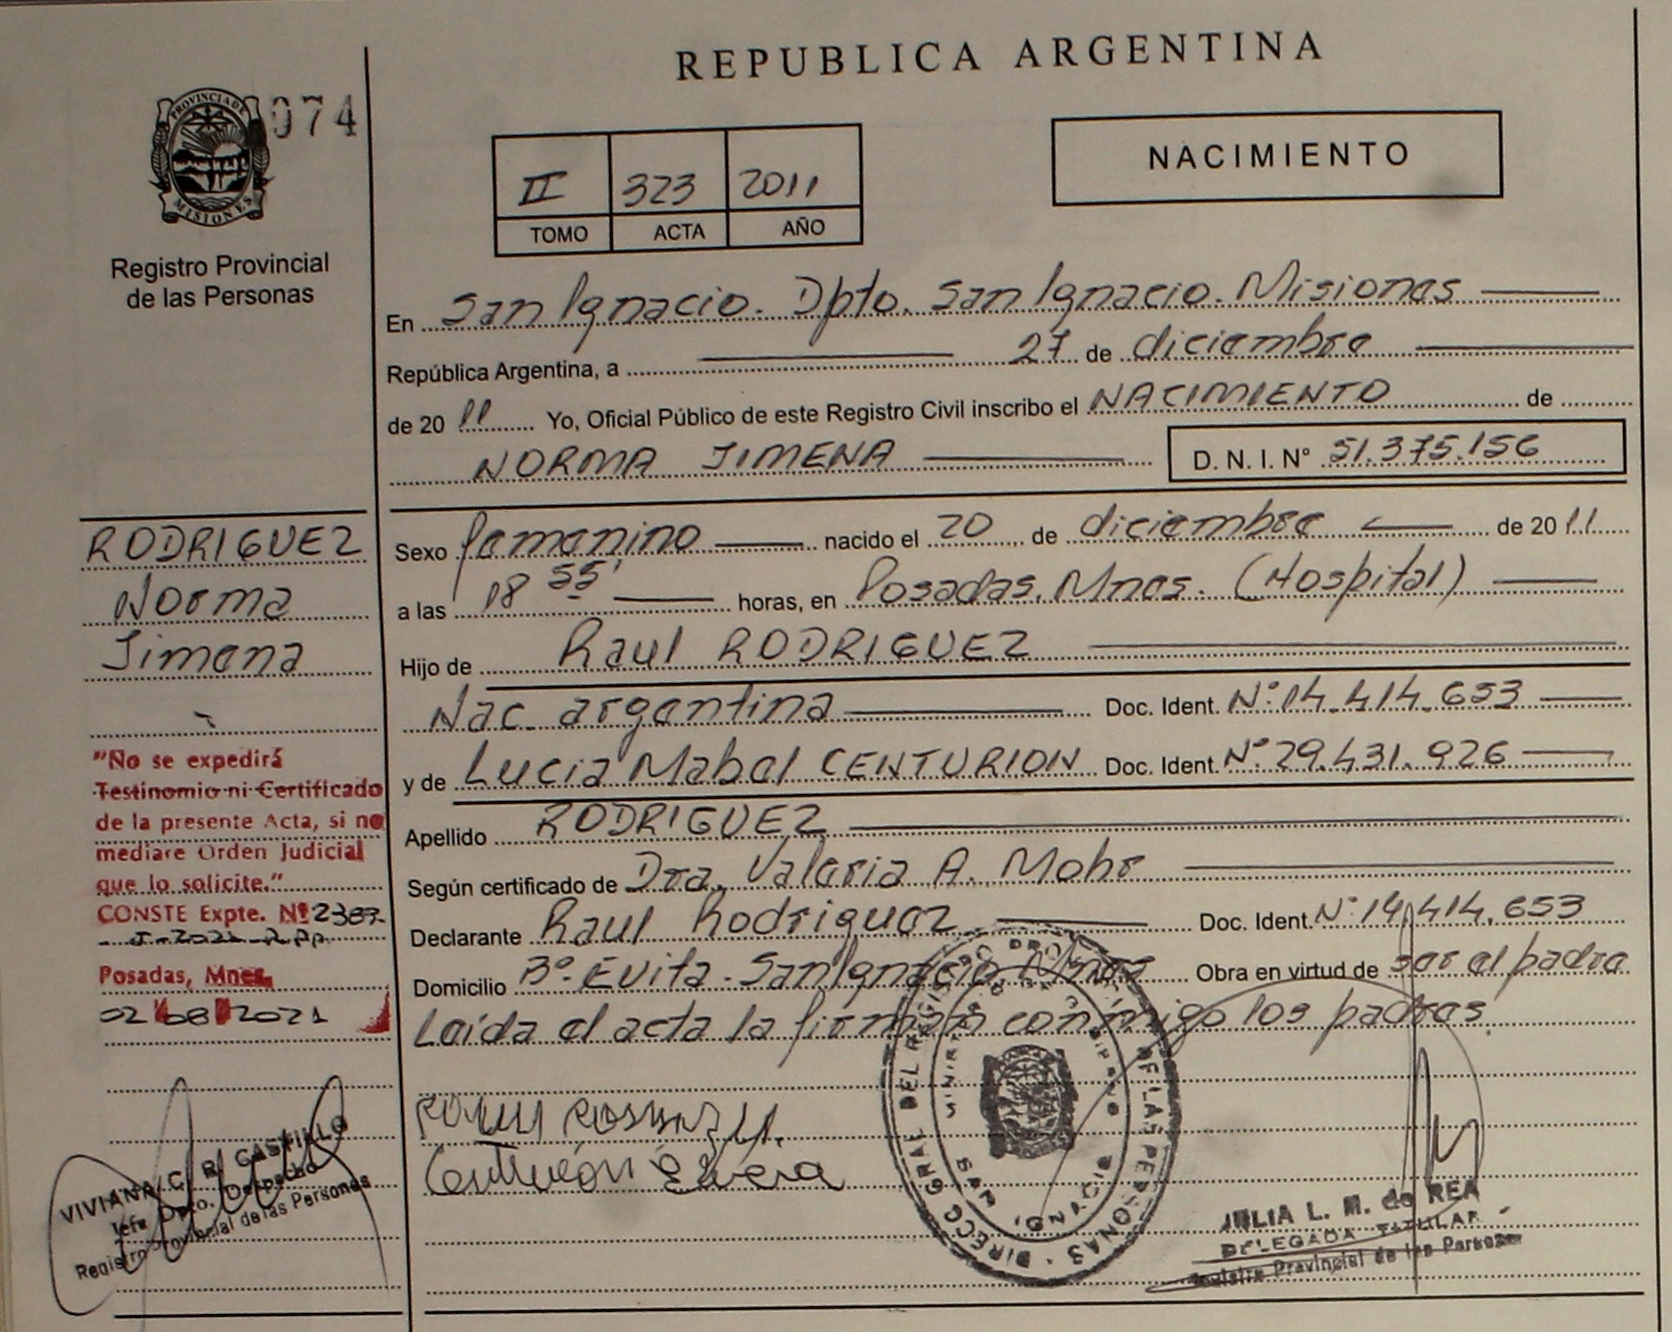 REPUBLICA ARGENTINA
PROVINCIA DE
MISIONES
074
Registro Provincial
de las Personas
II 323 2011
TOMO ACTA AÑO
NACIMIENTO
En San Ignacio. Dpto. San Ignacio. Misiones
República Argentina, a 27 de diciembre
de 20 11 Yo, Oficial Público de este Registro Civil inscribo el NACIMIENTO de
NORMA JIMENA D. N. I. N° 51.375.156
RODRIGUEZ
Norma
Jimena
Sexo femenino nacido el 20 de diciembre de 20 11
a las 18 55' horas, en Posadas. Mnes. (Hospital)
Hijo de Raul RODRIGUEZ
Nac. argentina Doc. Ident. N° 14.414.653
y de Lucia Mabel CENTURION Doc. Ident. N° 29.431.926
Apellido RODRIGUEZ
Según certificado de Dra. Valeria A. Mohr
Declarante Raul Rodriguez Doc. Ident. N° 14.414.653
Domicilio B° Evita - San Ignacio Mnes Obra en virtud de ser el padre
Leída el acta la firman conmigo los padres.
"No se expedirá
Testinomio ni Certificado
de la presente Acta, si no
mediare Orden Judicial
que lo solicite."
CONSTE Expte. Nº 2387-
Posadas, Mnes.
02 08 2021
VIVIANA C. R. CASTILLO
Jefe Dpto. Despacho
Registro Provincial de las Personas
DIRECC. GRAL. DEL REGISTRO PROVINCIAL DE LAS PERSONAS
SAN IGNACIO
JULIA L. M. de REA
DELEGADA TITULAR
Registro Provincial de las Personas